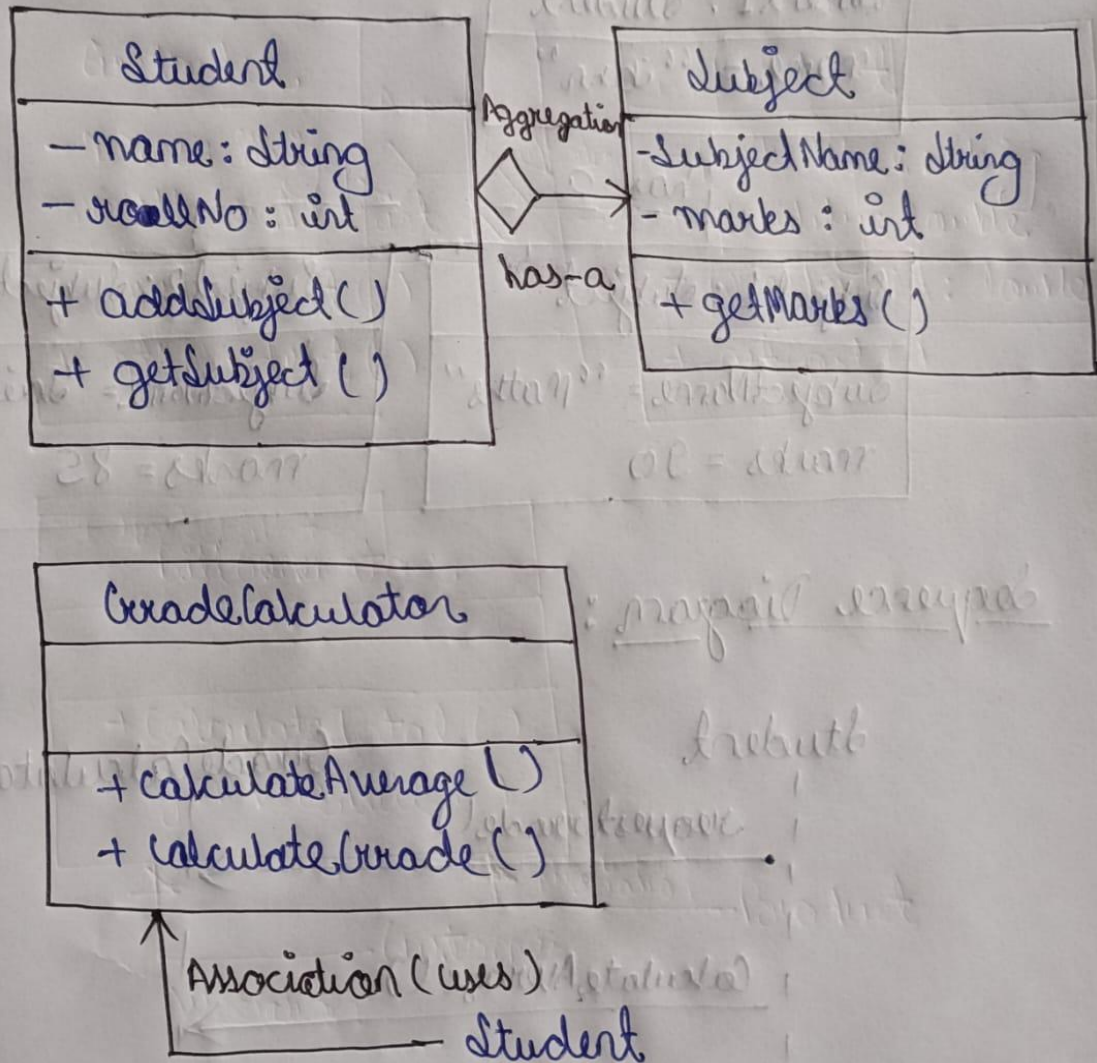 Student
- name: String
- rollNo: int
+ addSubject()
+ getSubject()
Aggregation
has-a
Subject
- SubjectName: String
- marks: int
+ getMarks()
GradeCalculator
+ calculateAverage()
+ calculateGrade()
Association (uses)
Student